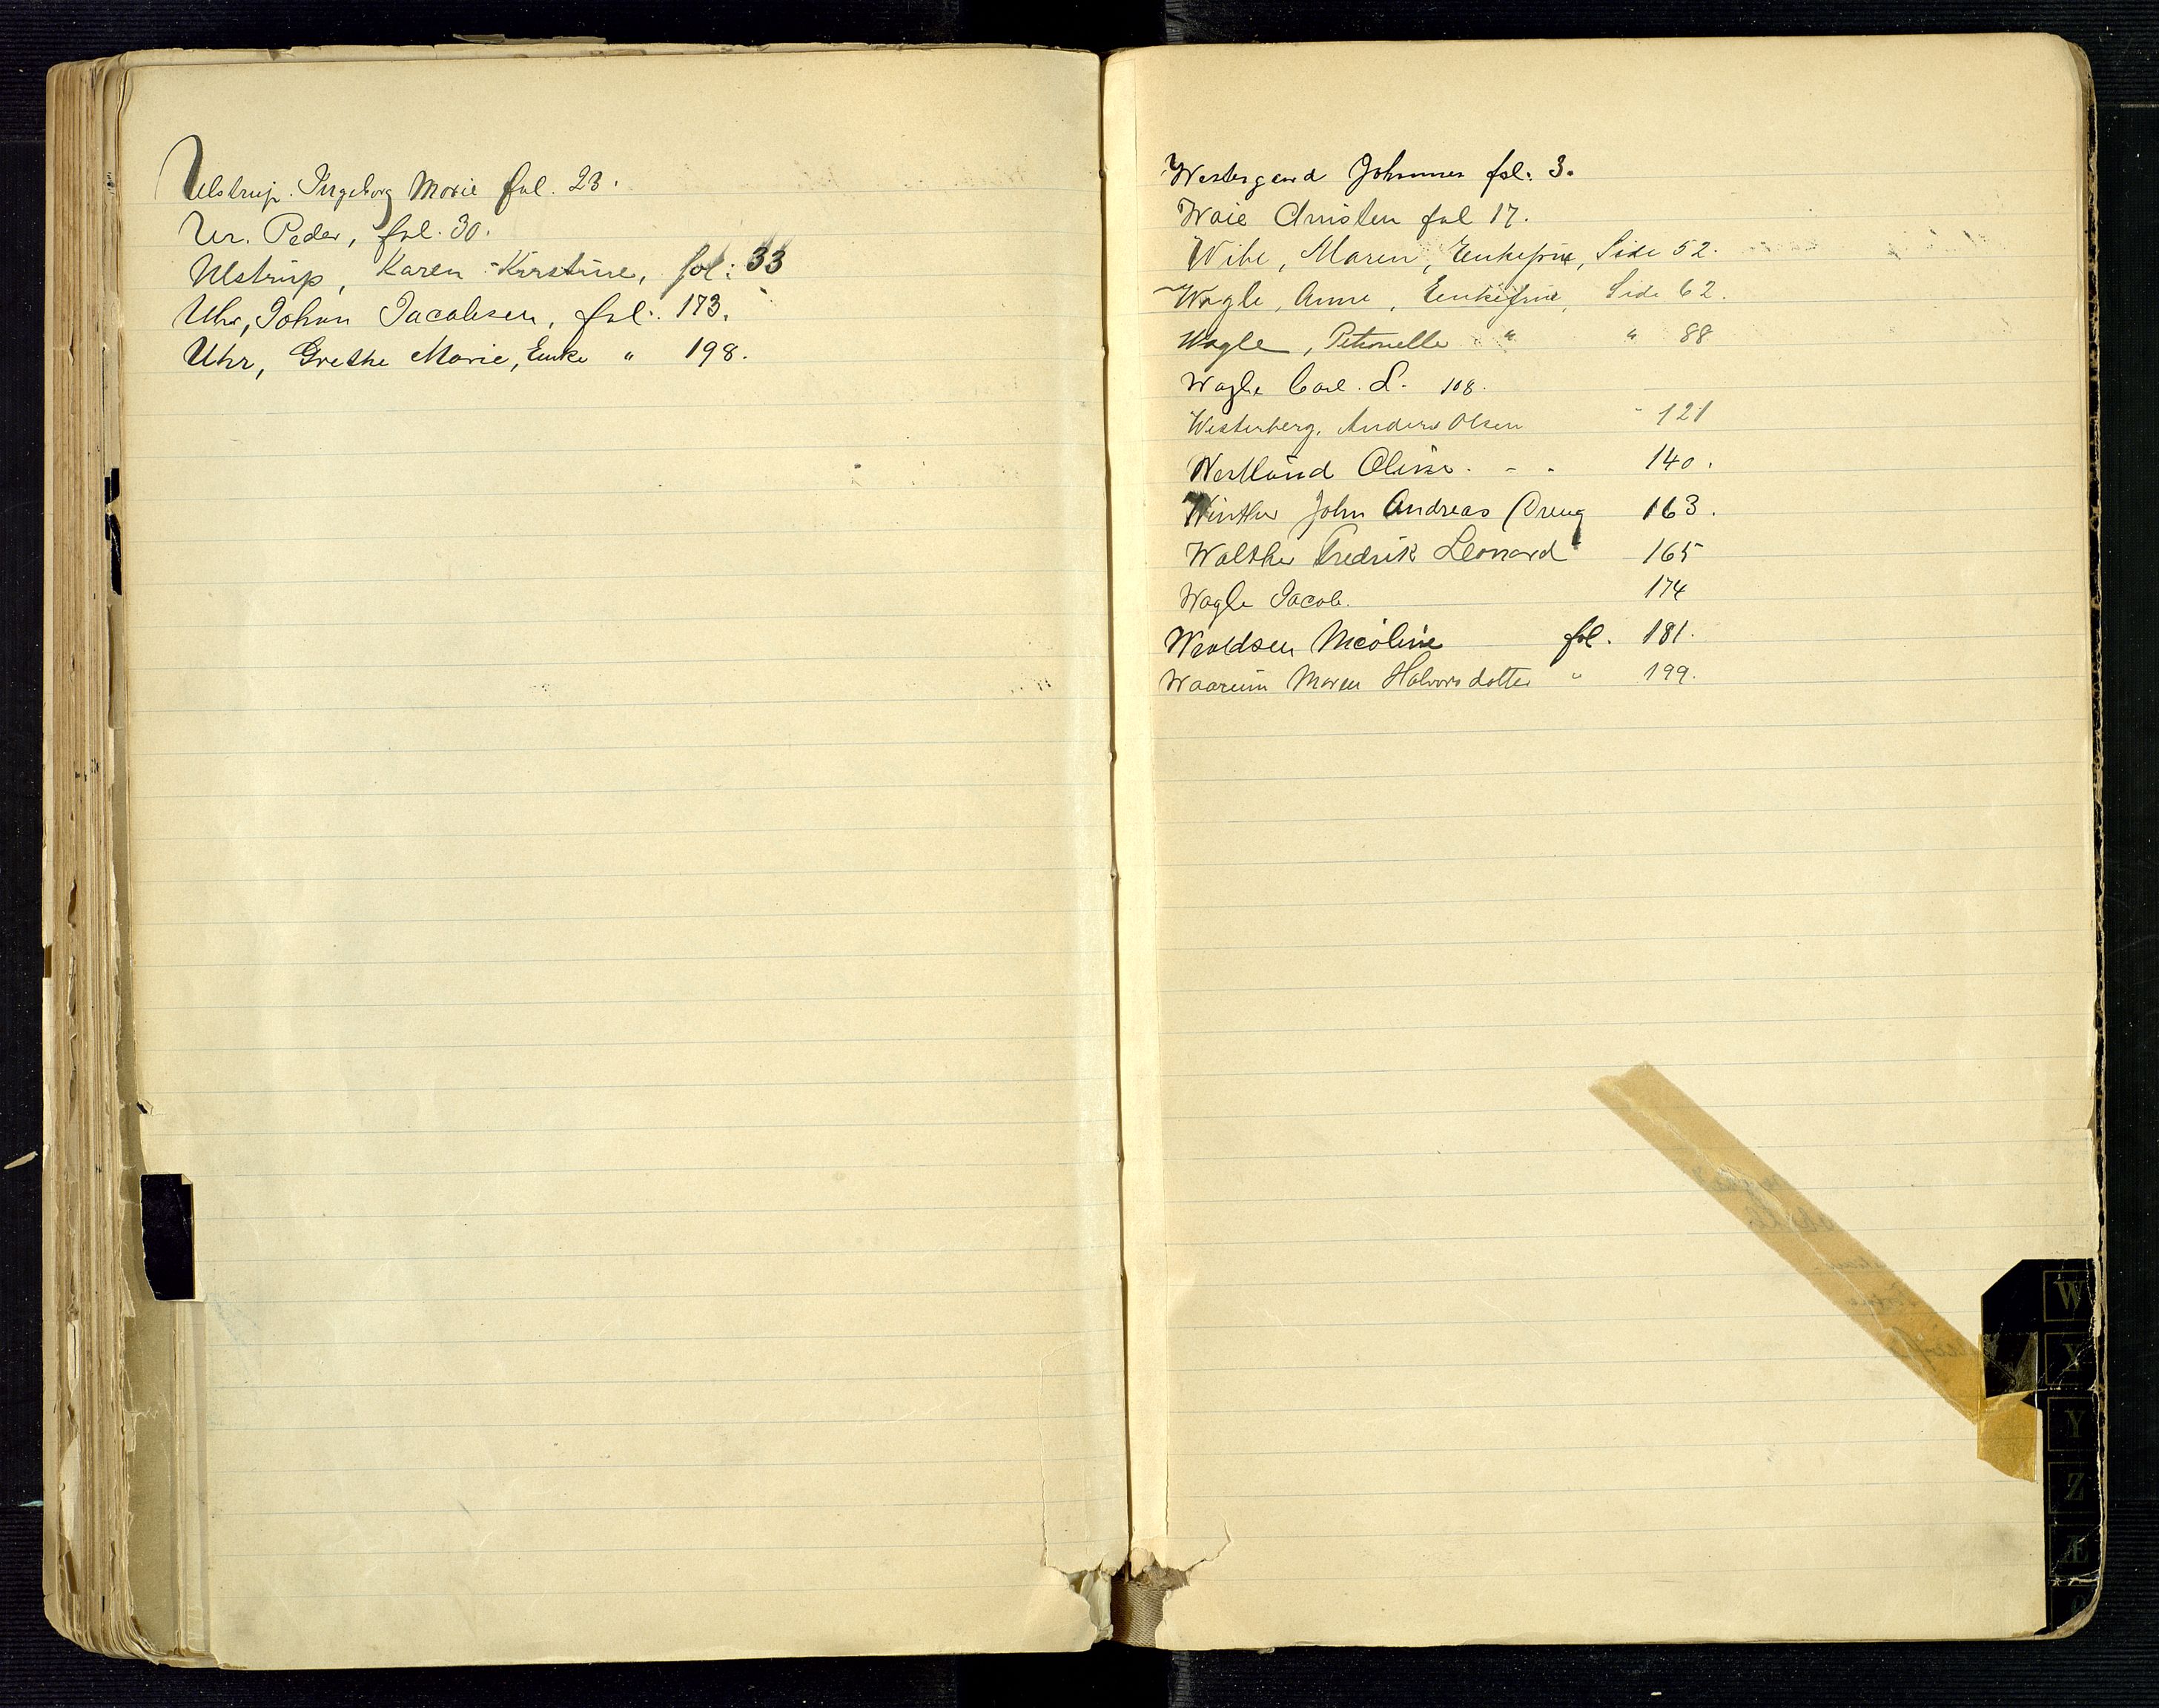 Ulstrup. Ingeborg Marie fol. 23.
Ur. Peder, fol. 30.
Ulstrup, Karen Kirstine, fol: 33
Uhr, Johan Jacobsen, fol. 173.
Uhr, Grethe Marie, Enke " 198.
Westergaard Johannes fol. 3.
Waie Christen fol 17.
Wibe, Maren, Enkefrue, Side 52.
Wagle, Anne, Enkefrue, Side 62.
Wagle, Petronelle " " 88
Wagle Carl. L. 108.
Westerberg, Anders Olsen - 121
Westlund Oline. - - 140.
Winther John Andreas 163.
Walther Fredrik Leonard 165
Wagle Jacob. 174
Nicoline fol. 181.
Maren Halvorsdatter " 199.
W
X
Y
Z
Æ